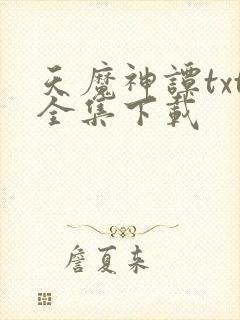 天魔神譚txt
全集下載
詹夏来